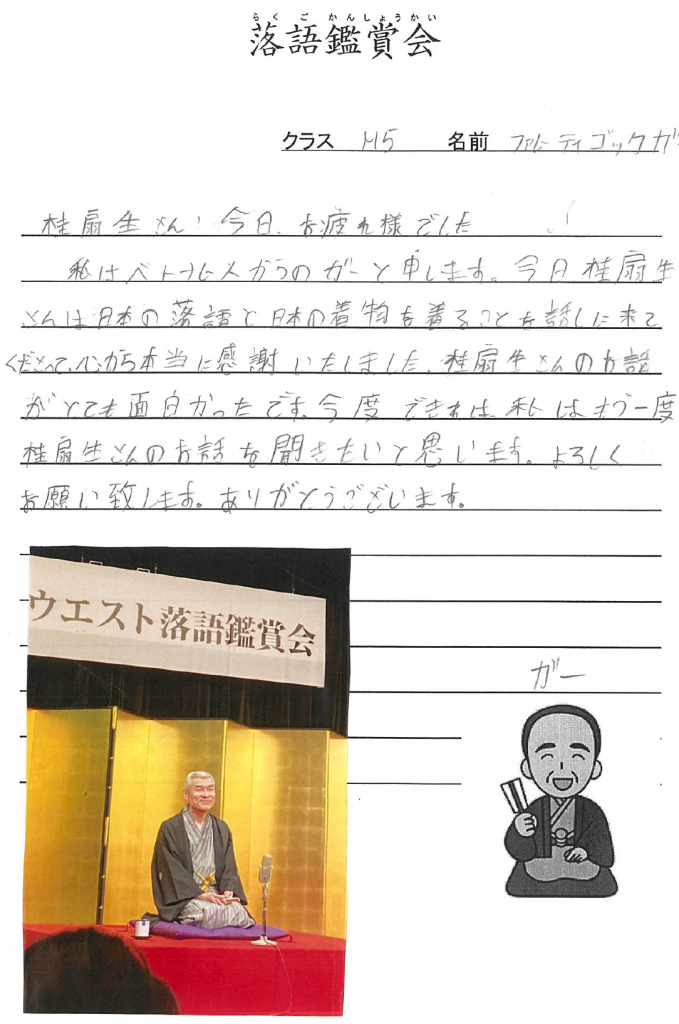 らくごかんしょうかい
落語鑑賞会
クラス M5 名前 ファム ティ ゴック ガー
桂扇生さん！今日、お疲れ様でした
私はベトナム人からのガーと申します。今日桂扇生
さんは日本の落語と日本の着物を着ることを話しに来て
くださって、心から本当に感謝いたしました。桂扇生さんのお話
がとても面白かったです。今度できれば、私はもう一度
桂扇生さんのお話を聞きたいと思います。よろしく
お願い致します。ありがとうございます。
ウエスト落語鑑賞会
ガー